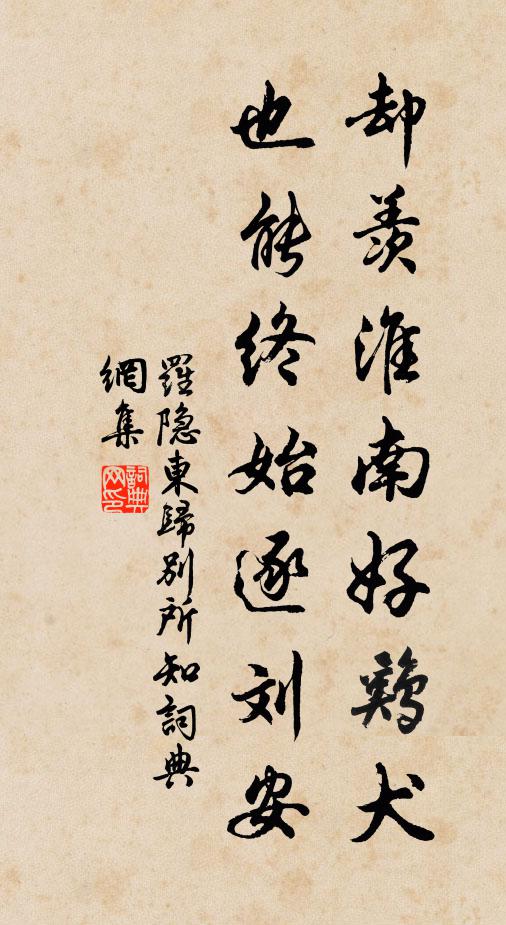 却羨淮南好鷄犬
也能终始逐刘安
羅隐東歸别所知詞典
網集
詞典
网印